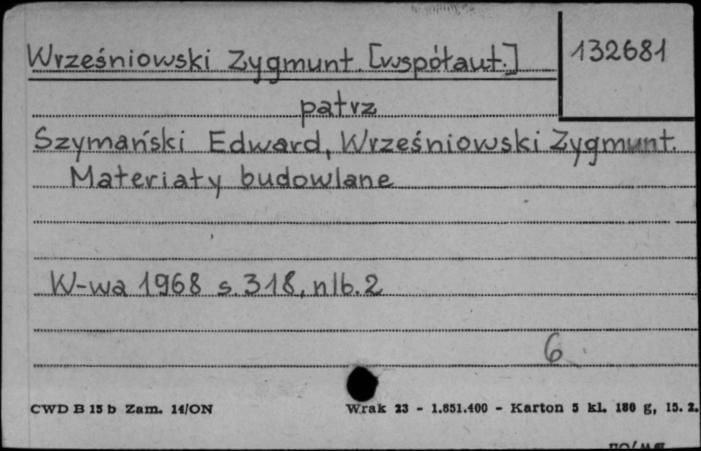 Wrześniowski Zygmunt. [współaut.]
132681
patrz
Szymański Edward, Wrześniowski Zygmunt.
Materiały budowlane
W-wa 1968 s. 318, nlb. 2
6
CWD B 15 b Zam. 14/ON
Wrak 23 - 1.851.400 - Karton 5 kl. 180 g, 15. 2.